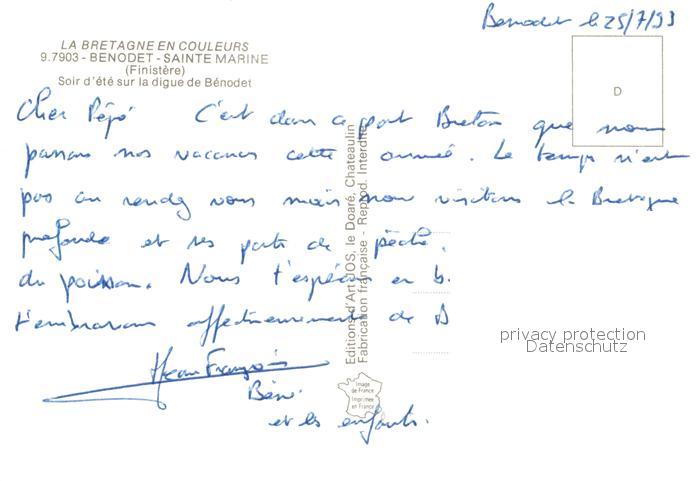 Benodet le 25/7/93
LA BRETAGNE EN COULEURS
9.7903 - BENODET - SAINTE MARINE
(Finistère)
Soir d'été sur la digue de Bénodet
D
Cher Pépé C'est dans ce port Breton que nous
passons nos vacances cette année. Le temps n'est
pas au rendez vous mais nous visitons la Bretagne
profonde et ses ports de pêche.
du poisson. Nous t'espérons en b.
t'embrassons affectueusement de B
Jean François
Béné
et les enfants.
Editions d'Art JOS, le Doaré, Chateaulin
Fabrication française - Reprod. Interdite
Image
de France
Imprimée
en France
privacy protection
Datenschutz